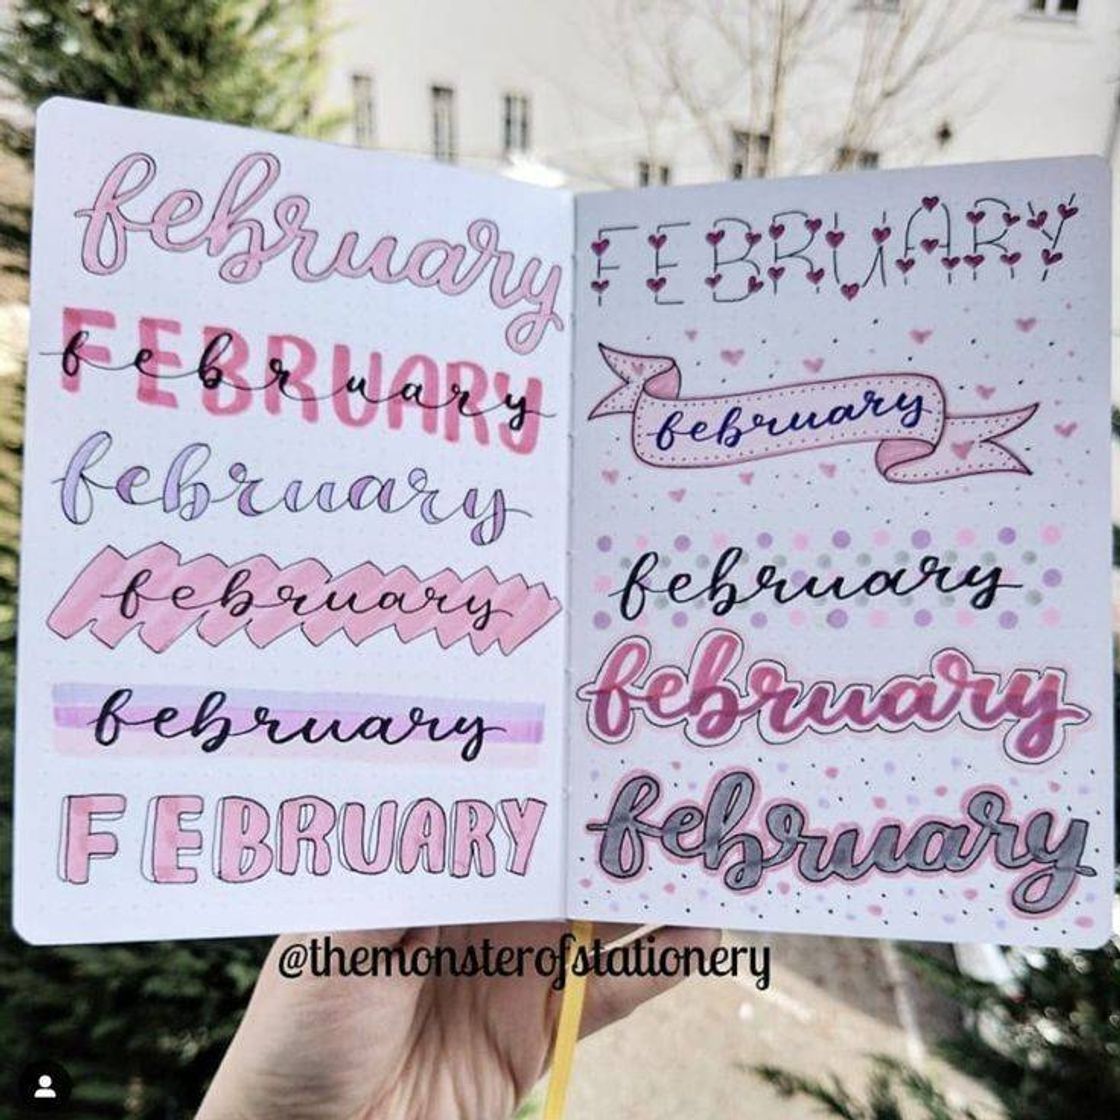 february
FEBRUARY
february
february
february
february
FEBRUARY
FEBRUARY
february
february
february
february
@themonsterofstationery